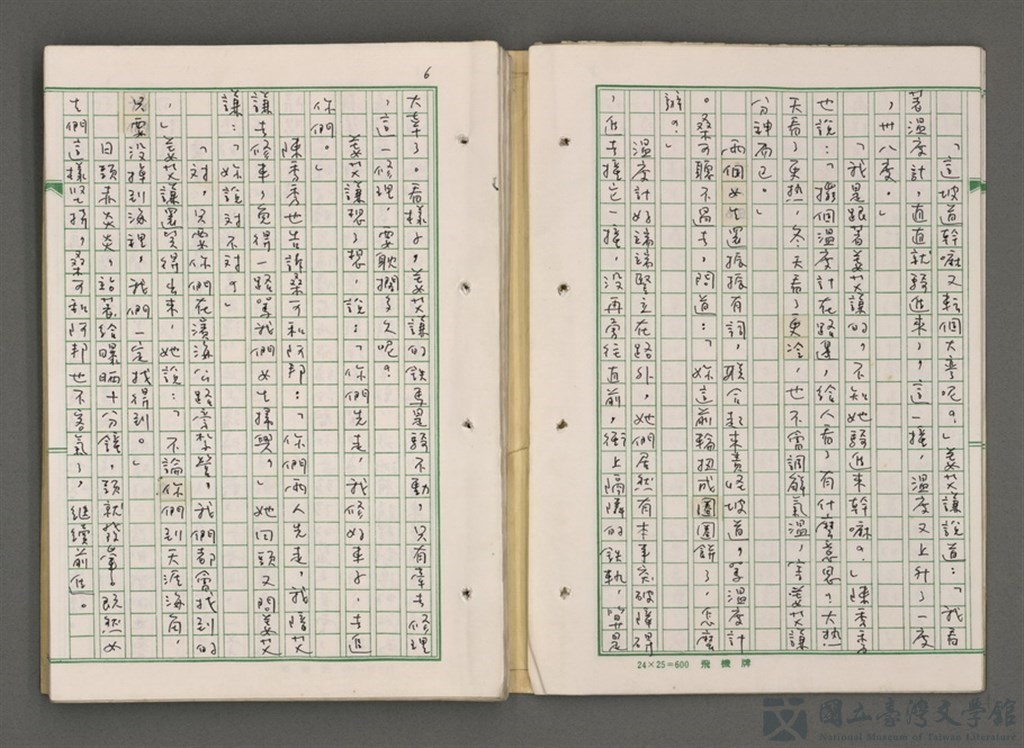 「這坡道幹嘛又轉個大彎呢?」姜艾謙說道:「我看
著溫度計,直直就騎進來了,這一撞,溫度又上升了一度
,卅八度。」
「我是跟著姜艾謙的,不知她騎進來幹嘛?」陳秀秀
也說:「擺個溫度計在路邊,給人看了有什麼意思?大熱
天看了更熱,冬天看了更冷,也不會調解氣溫,害姜艾謙
分神而已。」
兩個女生還振振有詞,聯合起來責怪坡道,罵溫度計
。桑可聽不過去,問道:「妳這前輪扭成圈圈餅了,怎麼
辦?」
溫度計好端端豎立在路外,她們居然有本事突破障碍
,進去撞它一撞,沒再旁往直前,衝上隔鄰的鐵軌,算是
6
大幸了。看樣子,姜艾謙的鐵馬是騎不動,只有牽去修理
,這一修理,要耽擱多久呢?
姜艾謙想了想,說:「你們先走,我修好車子,去追
你們。」
陳秀秀也告訴桑可和阿邦:「你們兩人先走,我陪艾
謙去修車,免得一路罵我們女生掃興。」她回頭又問姜艾
謙:「妳說對不對?」
「對,只要你們在濱海公路旁紮營,我們都會找到的
。」姜艾謙還笑得出來,她說:「不論你們到天涯海角,
只要沒掉到海裡,我們一定找得到。」
日頭赤炎炎,站著給曝晒十分鐘,頭就發暈。既然女
生們這樣堅持,桑可和阿邦也不客氣了,繼續前進。
24×25=600 飛機牌
國立臺灣文學館
National Museum of Taiwan Literature